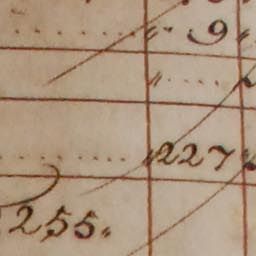 9
227
255.